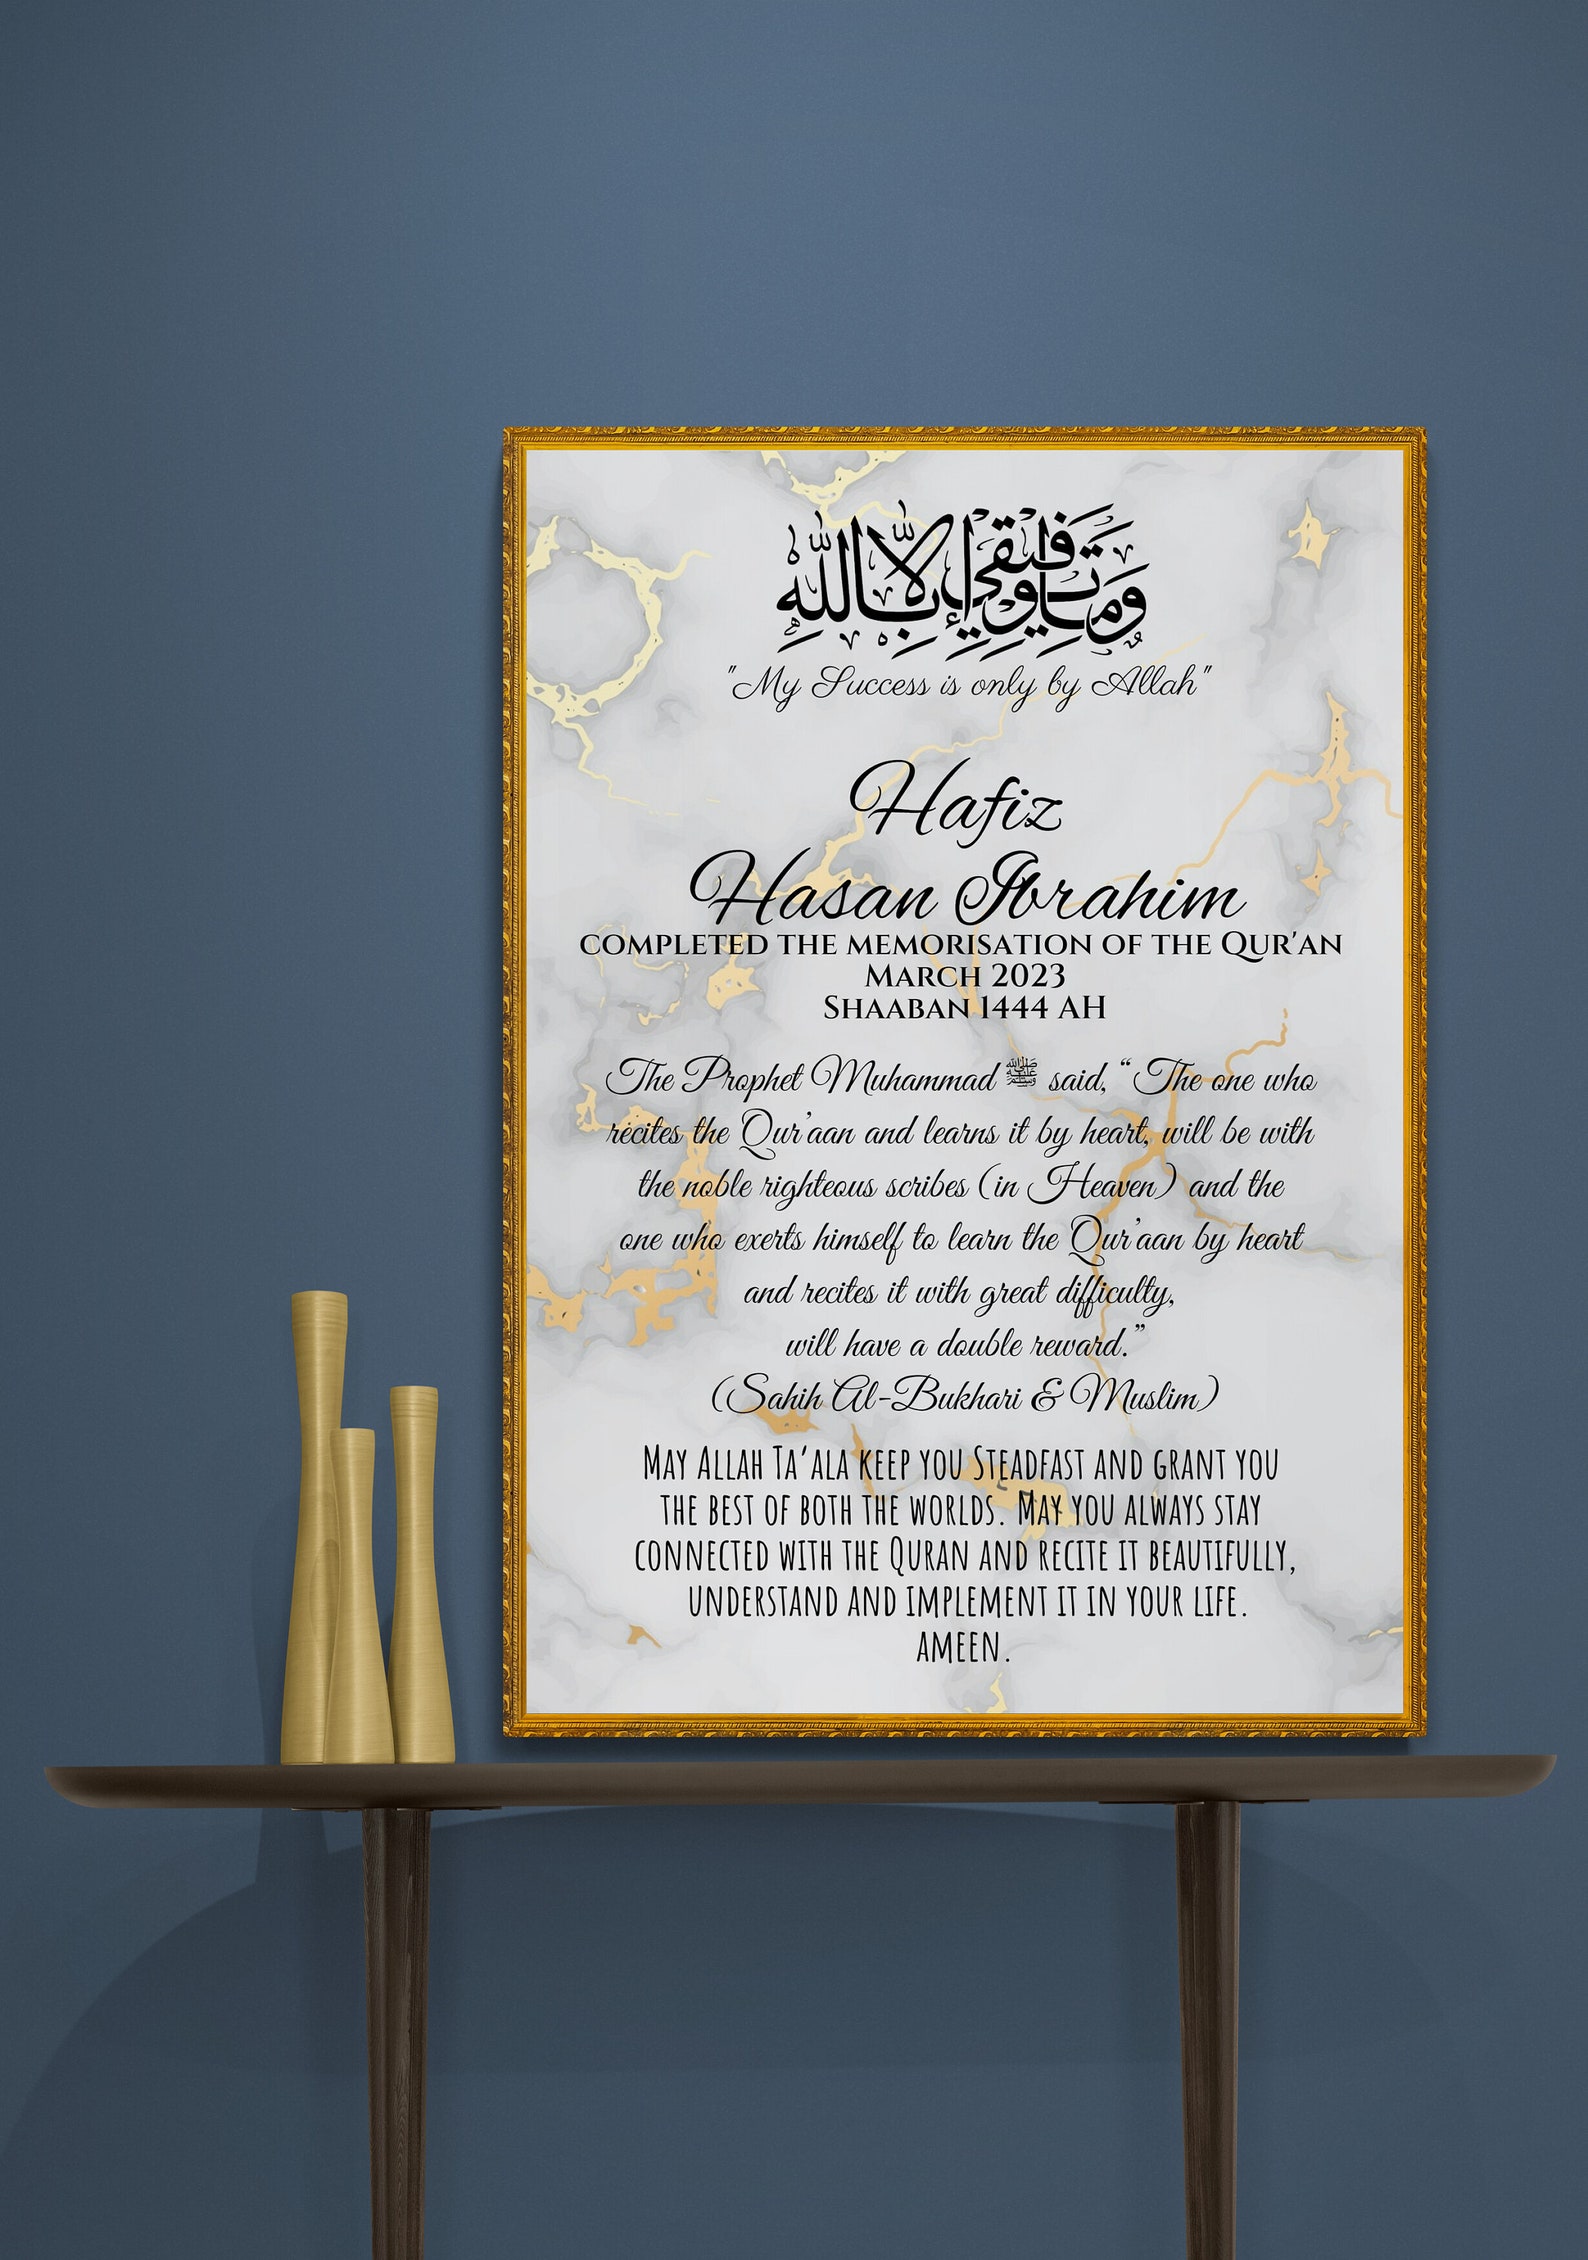 وَمَا تَوْفِيقِي إِلَّا بِاللَّهِ
"My Success is only by Allah"
Hafiz
Hasan Ibrahim
COMPLETED THE MEMORISATION OF THE QUR'AN
MARCH 2023
SHAABAN 1444 AH
The Prophet Muhammad ﷺ said, “The one who
recites the Qur’aan and learns it by heart, will be with
the noble righteous scribes (in Heaven) and the
one who exerts himself to learn the Qur’aan by heart
and recites it with great difficulty,
will have a double reward.”
(Sahih Al-Bukhari & Muslim)
MAY ALLAH TA‘ALA KEEP YOU STEADFAST AND GRANT YOU
THE BEST OF BOTH THE WORLDS. MAY YOU ALWAYS STAY
CONNECTED WITH THE QURAN AND RECITE IT BEAUTIFULLY,
UNDERSTAND AND IMPLEMENT IT IN YOUR LIFE.
AMEEN.